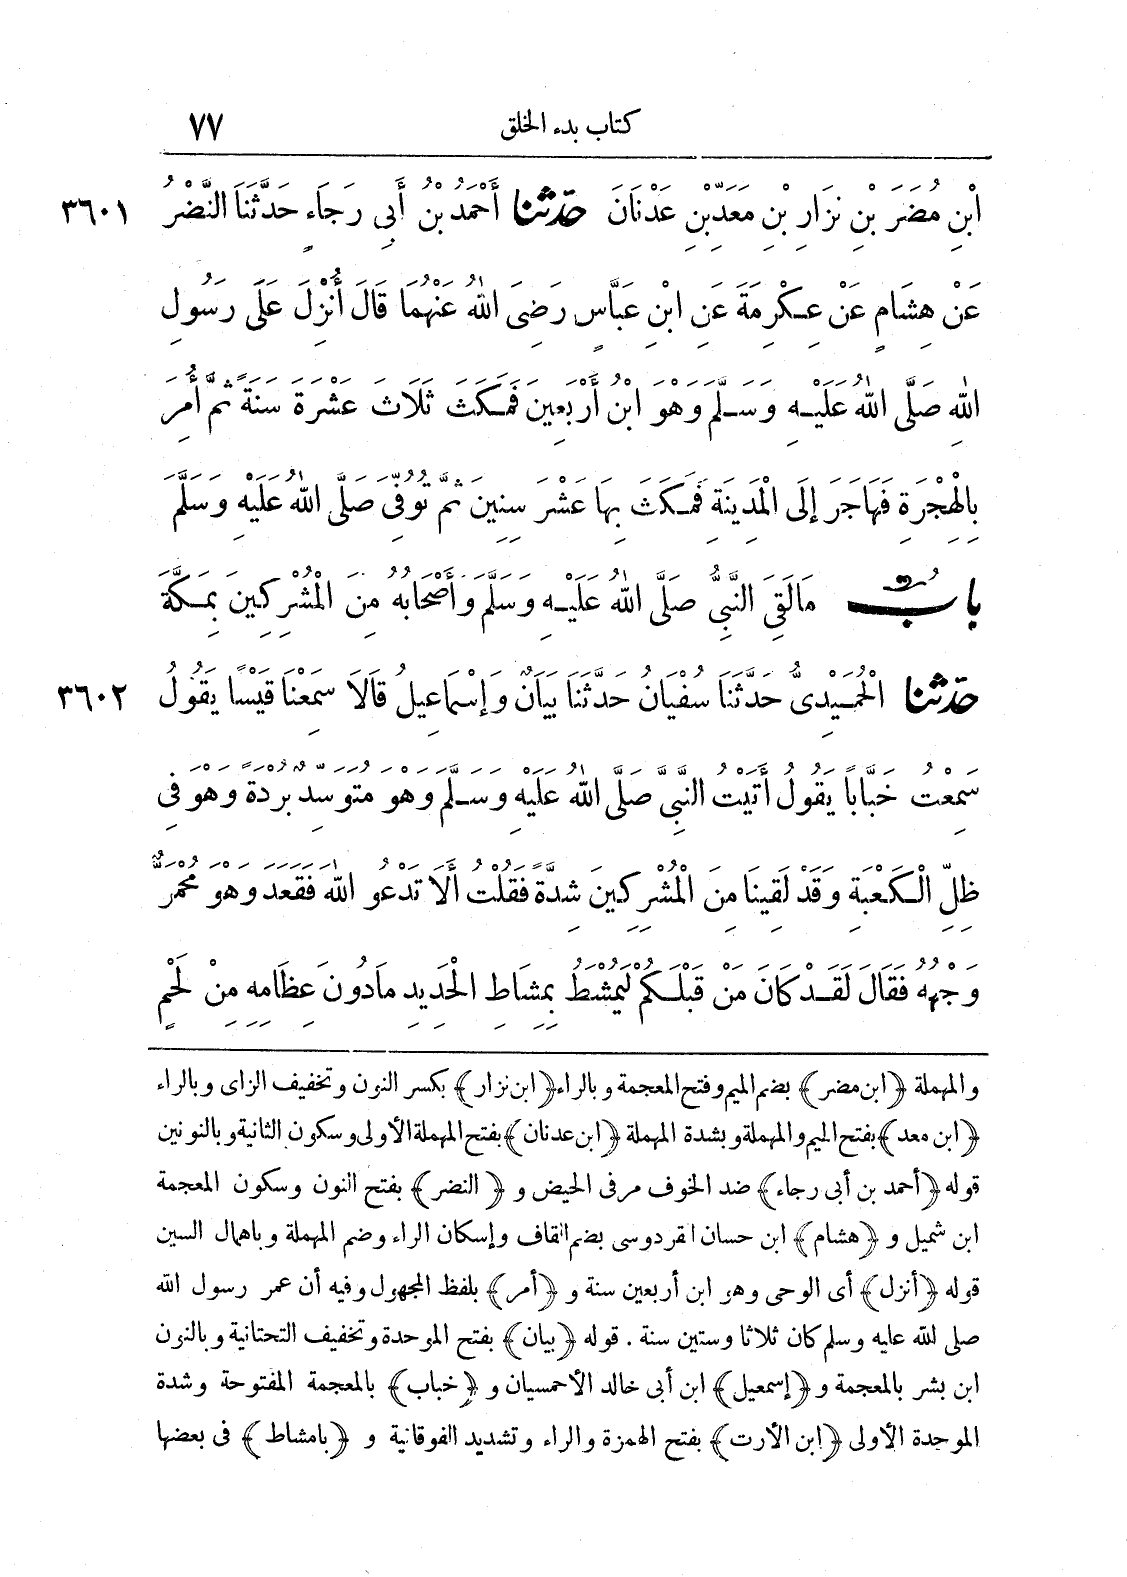 كتاب بدء الخلق ٧٧
ابْنِ مُضَرَ بْنِ نِزَارِ بْنِ مَعَدِّ بْنِ عَدْنَانَ حدثنا أَحْمَدُ بْنُ أَبِي رَجَاءٍ حَدَّثَنَا النَّضْرُ ٣٦٠١
عَنْ هِشَامٍ عَنْ عِكْرِمَةَ عَنِ ابْنِ عَبَّاسٍ رَضِىَ اللهُ عَنْهُمَا قَالَ أُنْزِلَ عَلَى رَسُولِ
اللهِ صَلَّى اللهُ عَلَيْهِ وَسَلَّمَ وَهْوَ ابْنُ أَرْبَعِينَ فَمَكَثَ ثَلَاثَ عَشْرَةَ سَنَةً ثُمَّ أُمِرَ
بِالْهِجْرَةِ فَهَاجَرَ إِلَى الْمَدِينَةِ فَمَكَثَ بِهَا عَشْرَ سِنِينَ ثُمَّ تُوُفِّىَ صَلَّى اللهُ عَلَيْهِ وَسَلَّمَ
بابُ مَالَقِىَ النَّبِىُّ صَلَّى اللهُ عَلَيْهِ وَسَلَّمَ وَأَصْحَابُهُ مِنَ الْمُشْرِكِينَ بِمَكَّةَ
حدثنا الْحُمَيْدِىُّ حَدَّثَنَا سُفْيَانُ حَدَّثَنَا بَيَانٌ وَإِسْمَاعِيلُ قَالَا سَمِعْنَا قَيْسًا يَقُولُ ٣٦٠٢
سَمِعْتُ خَبَّابًا يَقُولُ أَتَيْتُ النَّبِىَّ صَلَّى اللهُ عَلَيْهِ وَسَلَّمَ وَهْوَ مُتَوَسِّدٌ بُرْدَةً وَهْوَ فِى
ظِلِّ الْكَعْبَةِ وَقَدْ لَقِينَا مِنَ الْمُشْرِكِينَ شِدَّةً فَقُلْتُ أَلَا تَدْعُو اللهَ فَقَعَدَ وَهْوَ مُحْمَرٌّ
وَجْهُهُ فَقَالَ لَقَدْ كَانَ مَنْ قَبْلَكُمْ لَيُمْشَطُ بِمِشَاطِ الْحَدِيدِ مَادُونَ عِظَامِهِ مِنْ لَحْمٍ
والمهملة ﴿ابن مضر﴾ بضم الميم وفتح المعجمة وبالراء ﴿ابن نزار﴾ بكسر النون وتخفيف الزاى وبالراء
﴿ابن معد﴾ بفتح الميم والمهملة وبشدة المهملة ﴿ابن عدنان﴾ بفتح المهملة الأولى وسكون الثانية وبالنونين
قوله ﴿أحمد بن أبى رجاء﴾ ضد الخوف مر فى الحيض و ﴿النضر﴾ بفتح النون وسكون المعجمة
ابن شميل و ﴿هشام﴾ ابن حسان القردوسى بضم القاف وإسكان الراء وضم المهملة وباهمال السين
قوله ﴿أنزل﴾ أى الوحى وهو ابن أربعين سنة و ﴿أمر﴾ بلفظ المجهول وفيه أن عمر رسول الله
صلى الله عليه وسلم كان ثلاثا وستين سنة . قوله ﴿بيان﴾ بفتح الموحدة وتخفيف التحتانية وبالنون
ابن بشر بالمعجمة و ﴿إسمعيل﴾ ابن أبى خالد الأحمسيان و ﴿خباب﴾ بالمعجمة المفتوحة وشدة
الموحدة الأولى ﴿ابن الأرت﴾ بفتح الهمزة والراء وتشديد الفوقانية و ﴿بامشاط﴾ فى بعضها